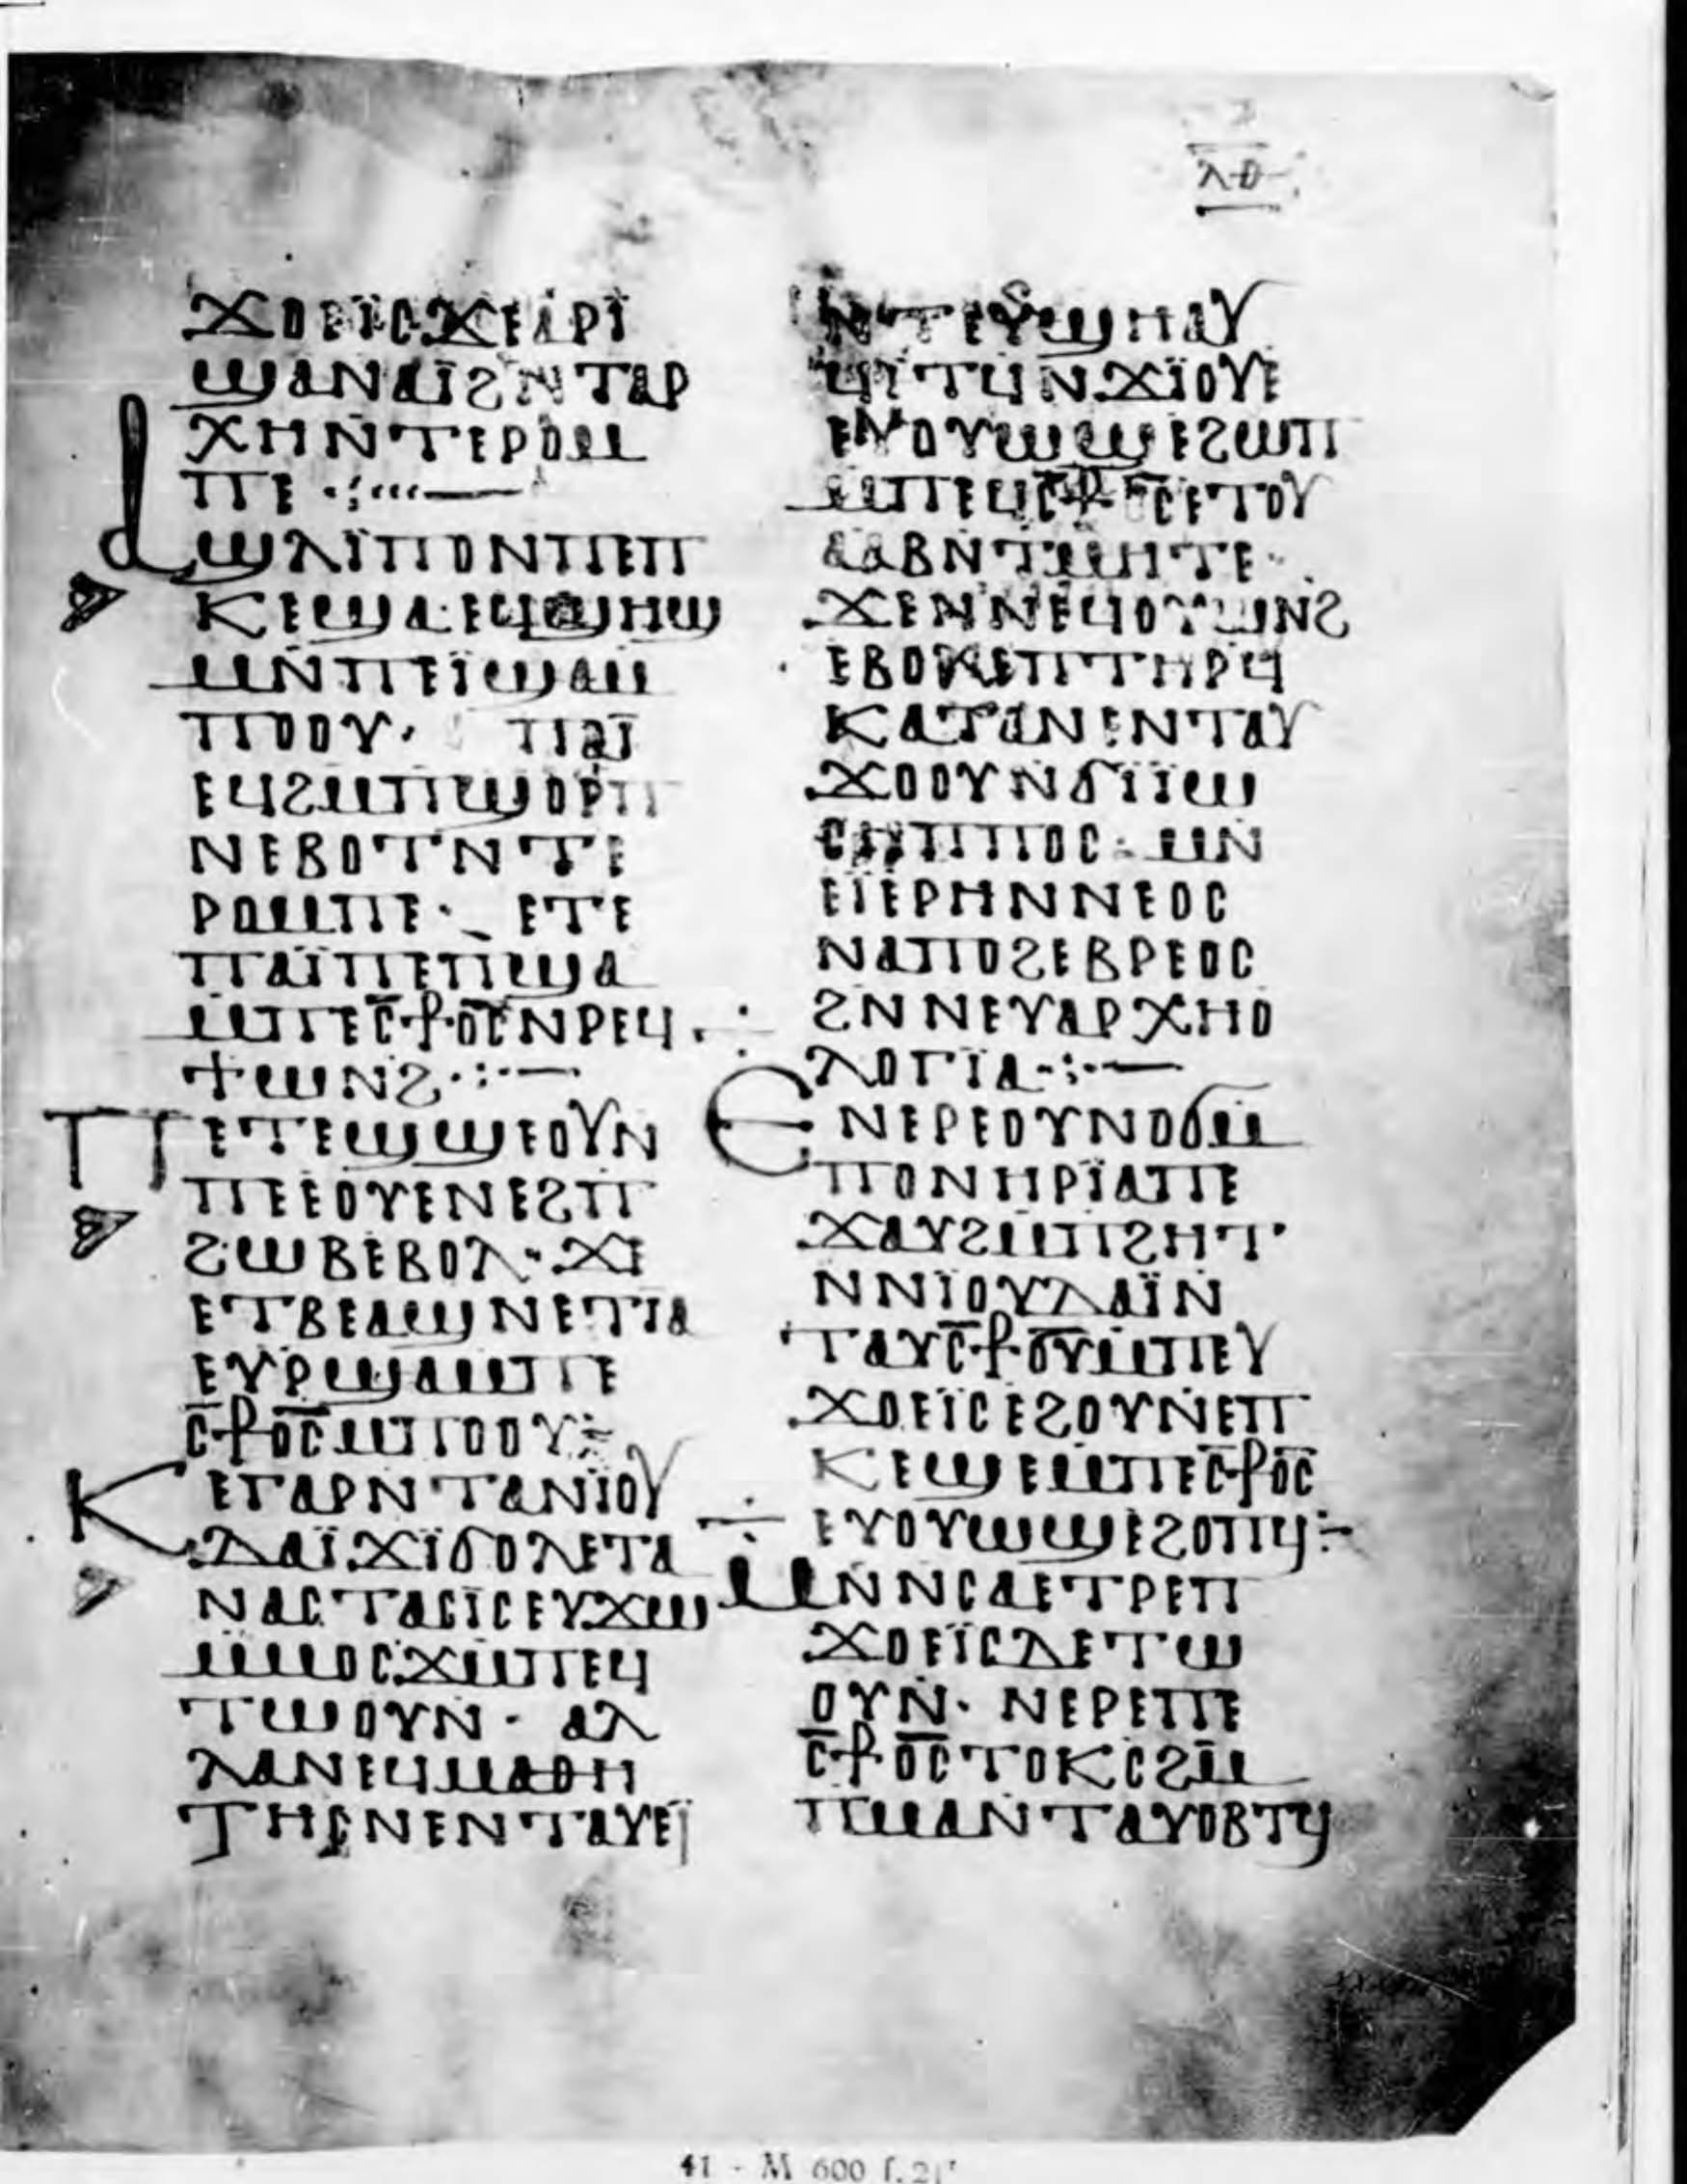 ⲗⲑ
ϪⲞⲈⲒⲤϪⲈⲀⲢⲒ
ϢⲀⲚⲀⲒϨⲚⲦⲀⲢ
ⲬⲎⲚⲦⲈⲢⲞⲘ
ⲠⲈ
ⲀϢⲖⲒⲠⲞⲚⲠⲈⲠ
ⲔⲈϢⲀ·ⲈϤϢⲎϢ
ⲘⲚⲠⲈⲒϢⲀⲘ
ⲠⲞⲞⲨ· ⲠⲀⲒ
ⲈϤϨⲘⲠϢⲞⲢⲠ
ⲚⲈⲂⲞⲦⲚⲦⲈ
ⲢⲞⲘⲠⲈ· ⲈⲦⲈ
ⲠⲀⲒⲠⲈⲠϢⲀ
ⲘⲠⲈⲤ⳨ⲞⲤⲚⲢⲈϤ
ϮⲰⲚϨ·:·—
ⲠⲈⲦⲈϢϢⲈⲞⲨⲚ
ⲠⲈⲈⲞⲨⲈⲚⲈϨⲠ
ϨⲰⲂⲈⲂⲞⲖ·ϪⲈ
ⲈⲦⲂⲈⲀϢⲚⲈⲦⲒⲀ
ⲈⲨⲢϢⲀⲘⲠⲈ
Ⲥ⳨ⲞⲤⲘⲠⲞⲞⲨ
ⲔⲈⲄⲀⲢⲚⲦⲀⲚⲒⲞⲨ
ⲆⲀⲒϪⲒϬⲞⲖⲈⲦⲀ
ⲚⲀⲤⲦⲀⲤⲒⲤⲈⲨϪⲰ
ⲘⲘⲞⲤϪⲘⲠⲈϤ
ⲦⲰⲞⲨⲚ· ⲀⲖ
ⲖⲀⲚⲈϤⲘⲀⲐⲎ
ⲦⲎⲤⲚⲈⲚⲦⲀⲨⲈⲒ
ⲚⲦⲈⲨϢⲎⲀⲨ
ϤⲒⲦϤⲚϪⲒⲞⲨⲈ
ⲈⲨⲞⲨⲰϢⲈϨⲰⲠ
ⲘⲠⲈϤⲤ⳨ⲞⲤⲈⲦⲞⲨ
ⲀⲀⲂⲚⲦⲘⲎⲦⲈ·
ϪⲈⲚⲚⲈϤⲞⲨⲰⲚϨ
ⲈⲂⲞⲖⲈⲠⲦⲎⲢϤ
ⲔⲀⲦⲀⲚⲈⲚⲦⲀⲨ
ϪⲞⲞⲨⲚϬⲒⲒⲰ
ⲤⲎⲠⲠⲞⲤ· ⲘⲚ
ⲈⲒⲈⲢⲎⲚⲚⲈⲞⲤ
ⲚⲀⲠⲞϨⲈⲂⲢⲈⲞⲤ
ϨⲚⲚⲈⲨⲀⲢⲬⲎⲞ
ⲖⲞⲄⲒⲀ·:·—
ⲈⲚⲈⲢⲈⲞⲨⲚⲞϬⲘ
ⲠⲞⲚⲎⲢⲒⲀⲠⲈ
ϪⲀⲨϨⲘⲠϨⲎⲦ·
ⲚⲚⲒⲞⲨⲆⲀⲒⲚ
ⲦⲀⲨⲤ⳨ⲞⲨⲘⲠⲈⲨ
ϪⲞⲈⲒⲤⲈϨⲞⲨⲚⲈⲠ
ⲔⲈϢⲈⲘⲠⲈⲤ⳨ⲞⲤ
ⲈⲨⲞⲨⲰϢⲈϨⲞⲠϤ
ⲘⲚⲚⲤⲀⲈⲦⲢⲈⲠ
ϪⲞⲈⲒⲤⲆⲈⲦⲰ
ⲞⲨⲚ· ⲚⲈⲢⲈⲠⲈ
Ⲥ⳨ⲞⲤⲦⲞⲔⲤϨⲘ
ⲠⲘⲀⲚⲦⲀⲨⲞⲂⲦϤ
41 - M 600 f. 21